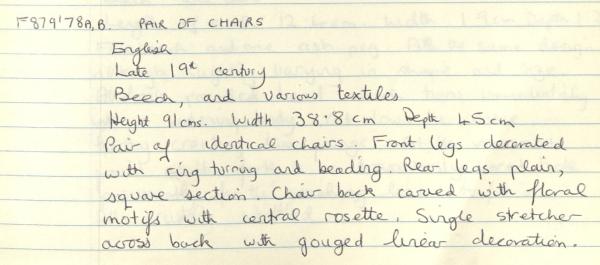 F879'78A,B. PAIR OF CHAIRS
English
Late 19th century
Beech, and various textiles
Height 91cms. Width 38.8 cm Depth 45cm
Pair of identical chairs. Front legs decorated
with ring turning and beading. Rear legs plain,
square section. Chair back carved with floral
motifs with central rosette. Single stretcher
across back with gouged linear decoration.